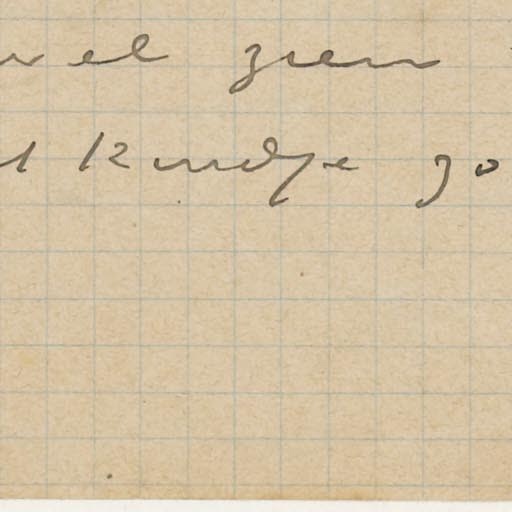 wel zien
t kindje go